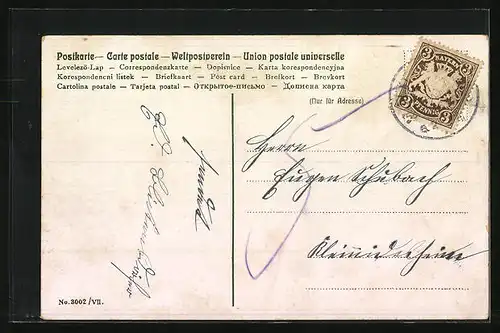 Postkarte — Carte postale — Weltpostverein — Union postale universelle
Levelező-Lap — Correspondenzkarte — Dopisnice — Karta korespondencyjna
Korespondenční lístek — Briefkaart — Post card — Brefkort — Brevkort
Cartolina postale — Tarjeta postal — Открытое-письмо — Дописна карта
(Nur für Adresse)
BAYERN
3 3
3 PFENNIG 3
Herrn
Eugen Schubach
Kleinniedesheim
No. 3002/VII.